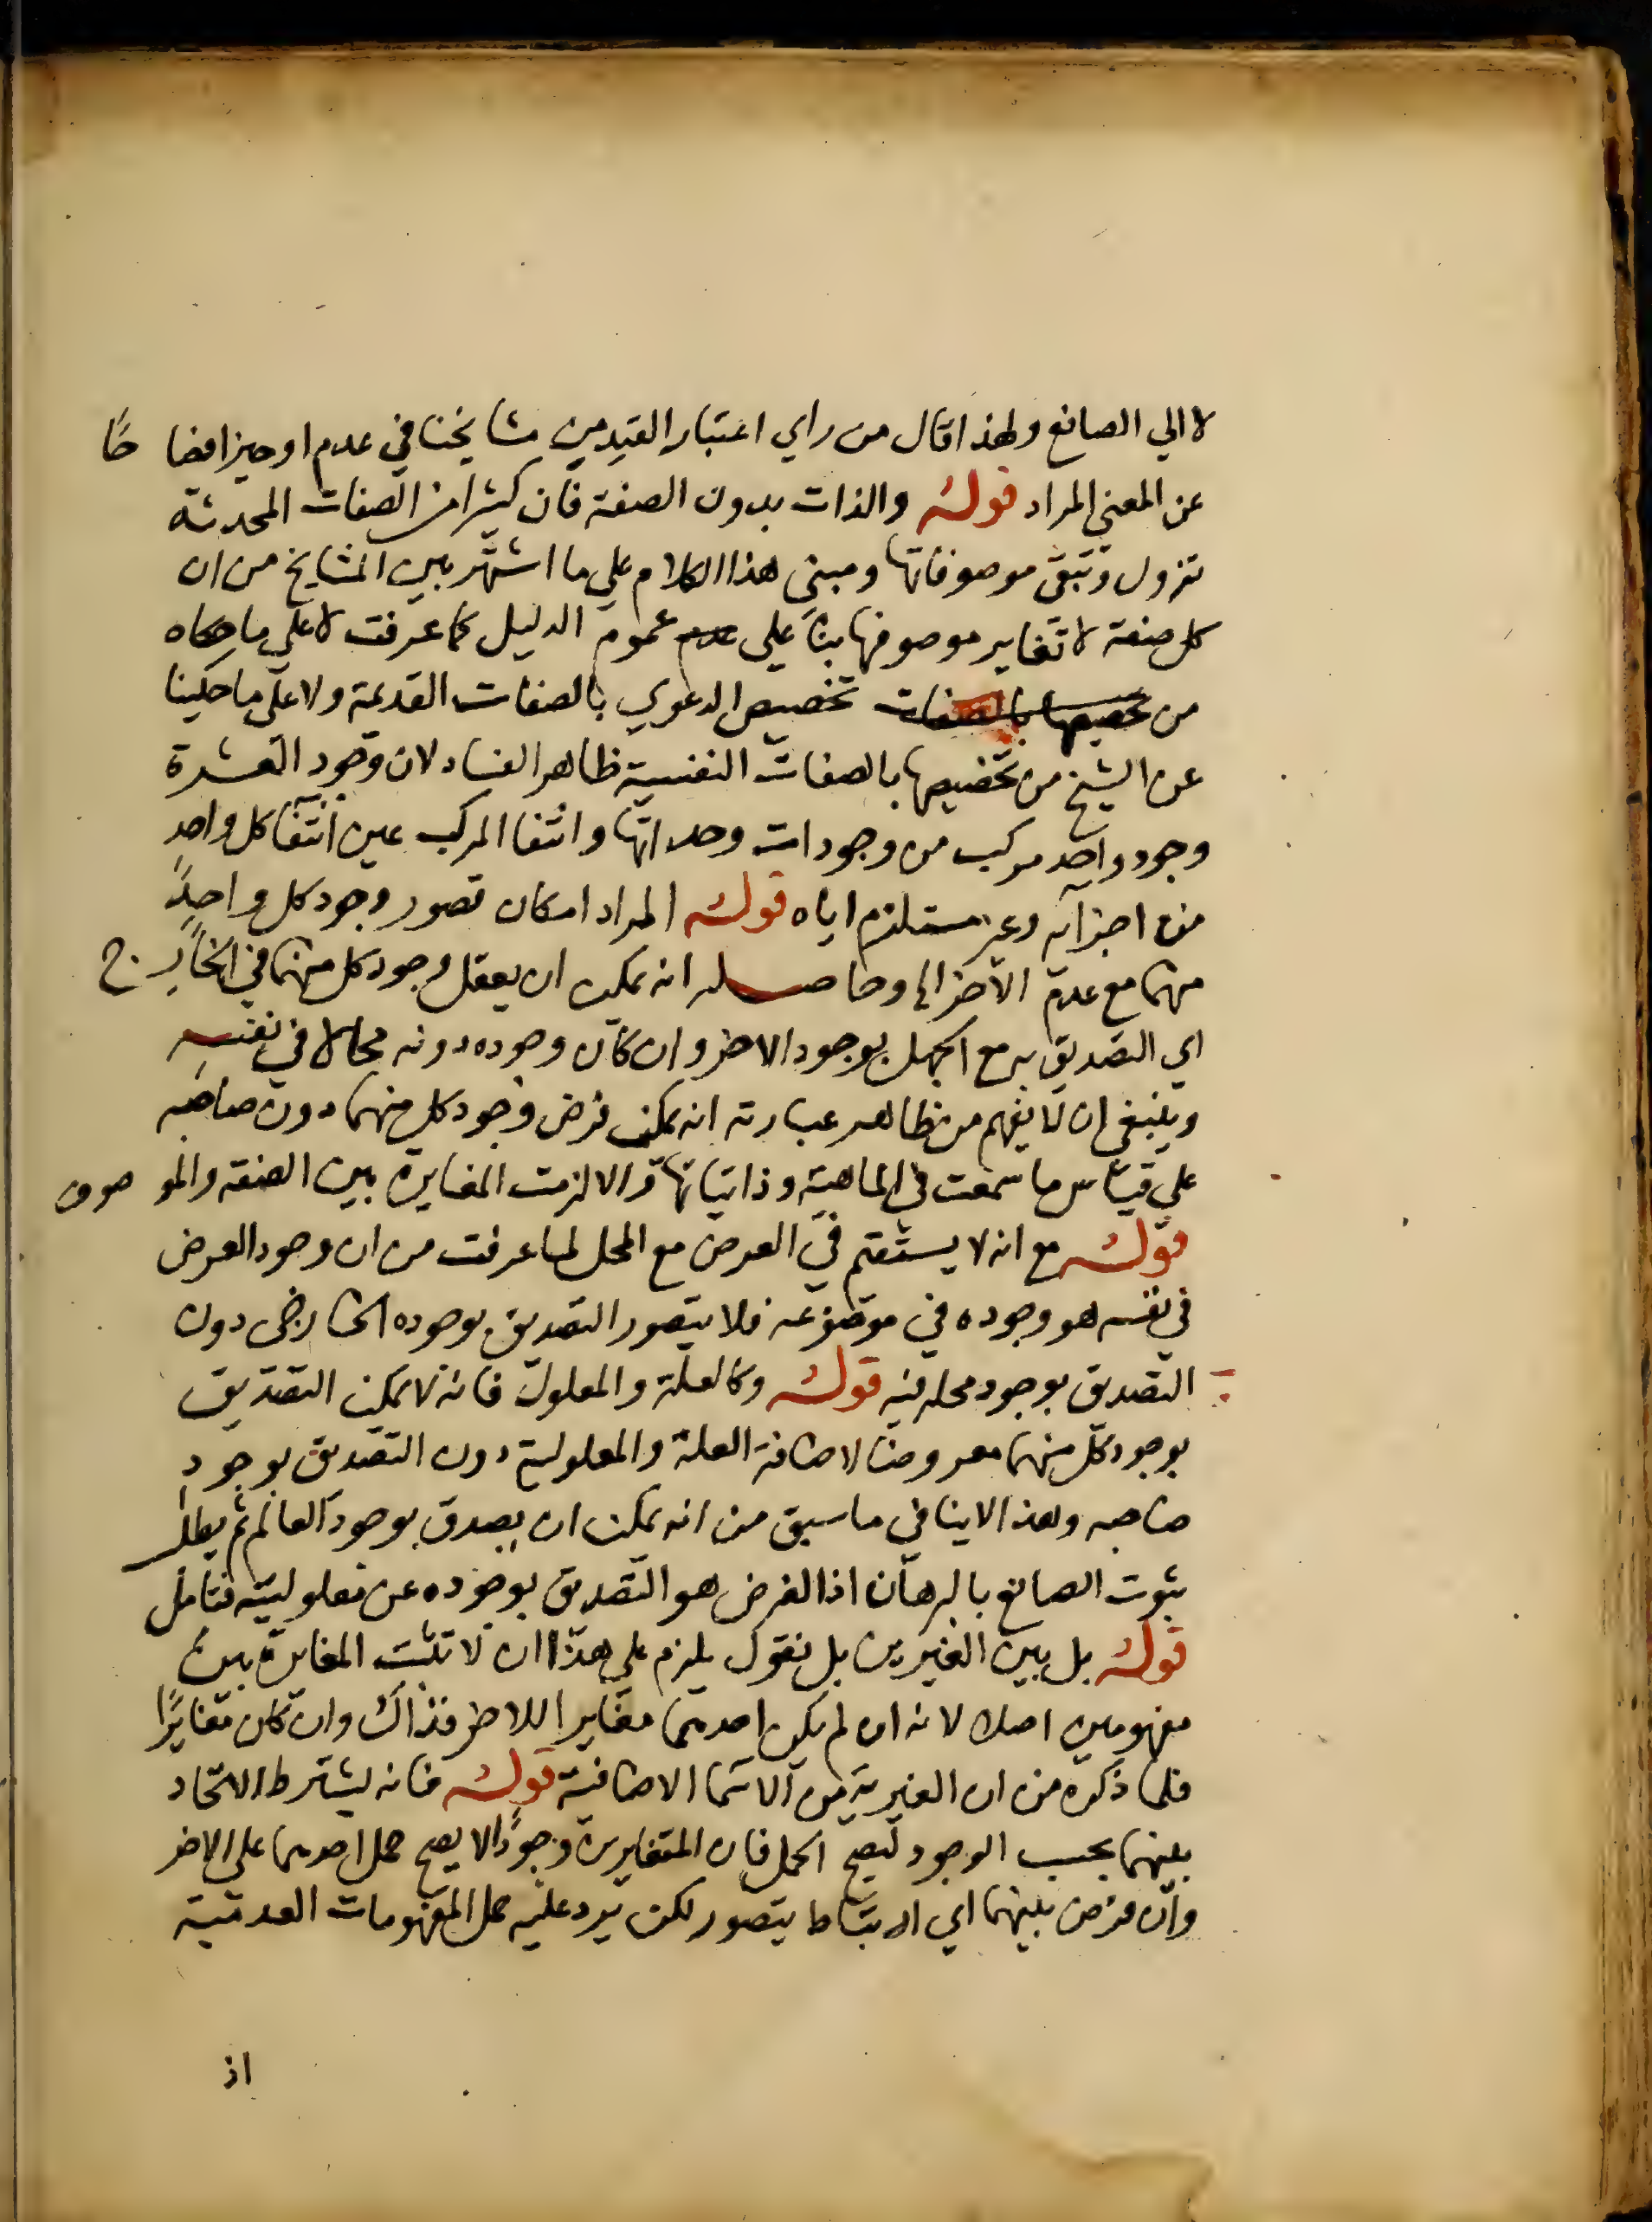 لا الي الصانع ولهذا قال من راي اعتبار القيد من مشايخنا في عدم او حيز افصاحًا
عن المعني المراد قوله والذات بدون الصفة فان كثيرا من الصفات المحدثة
تزول وتبقى موصوفاتها ومبنى هذا الكلام علي ما اشتهر بين المشايخ من ان
كل صفة لا تغاير موصوفها بناً علي عدم عموم الدليل كما عرفت لا علي ما حكاه
من تخصيصها بالصفات تخصيص الدعوي بالصفات القديمة ولا علي ما حكينا
عن الشيخ من تخصيصها بالصفات النفسية ظاهر الفساد لان وجود العشرة
وجود واحد مركب من وجودات وحداتها وانتفا المركب عين انتفآ كل واحد
من اجزآيه وغير مستلزم اياه قوله المراد امكان تصور وجود كل واحد
منهما مع عدم الآخر الي وحاصله انه يمكن ان يعقل وجود كل منهما في الخارج
اي التصديق به مع الجهل بوجود الاخر وان كان وجوده دونه محالا في نفسه
وينبغي ان لا يفهم من ظاهر عبارته انه يمكن فرض وجود كل منهما دون صاحبه
علي قياس ما سمعت في الماهية وذاتياتها والا لزمت المغايرة بين الصفة والموصوف
قوله مع انه لا يستقيم في العرض مع المحل لما عرفت من ان وجود العرض
في نفسه هو وجوده في موضوعه فلا يتصور التصديق بوجوده الخارجي دون
التصديق بوجود محله فيه قوله وكالعلة والمعلول فانه لا يمكن التصديق
بوجود كل منهما معروضا لاضافة العلة والمعلولية دون التصديق بوجود
صاحبه وهذا لا ينافي ما سبق من انه يمكن ان يصدق بوجود العالم ثم يطلب
ثبوت الصانع بالبرهان اذ الغرض هو التصديق بوجوده عن معلوليته فتامل
قوله بل بين الغيرين بل نقول يلزم علي هذا ان لا تثبت المغايرة بين
مفهومين اصلا لانه ان لم يكن احدهما مغايرا للاخر فذاك وان كان مغايرًا
فلما ذكره من ان الغيرية من الاسما الاضافية قوله فانه يشترط الاتحاد
بينهما بحسب الوجود ليصح الحمل فان المتغايرين وجودًا لا يصح حمل احدهما علي الاخر
وان فرض بينهما اي ارتباط يتصور لكن يرد عليه حمل المفهومات العدمية
اذ